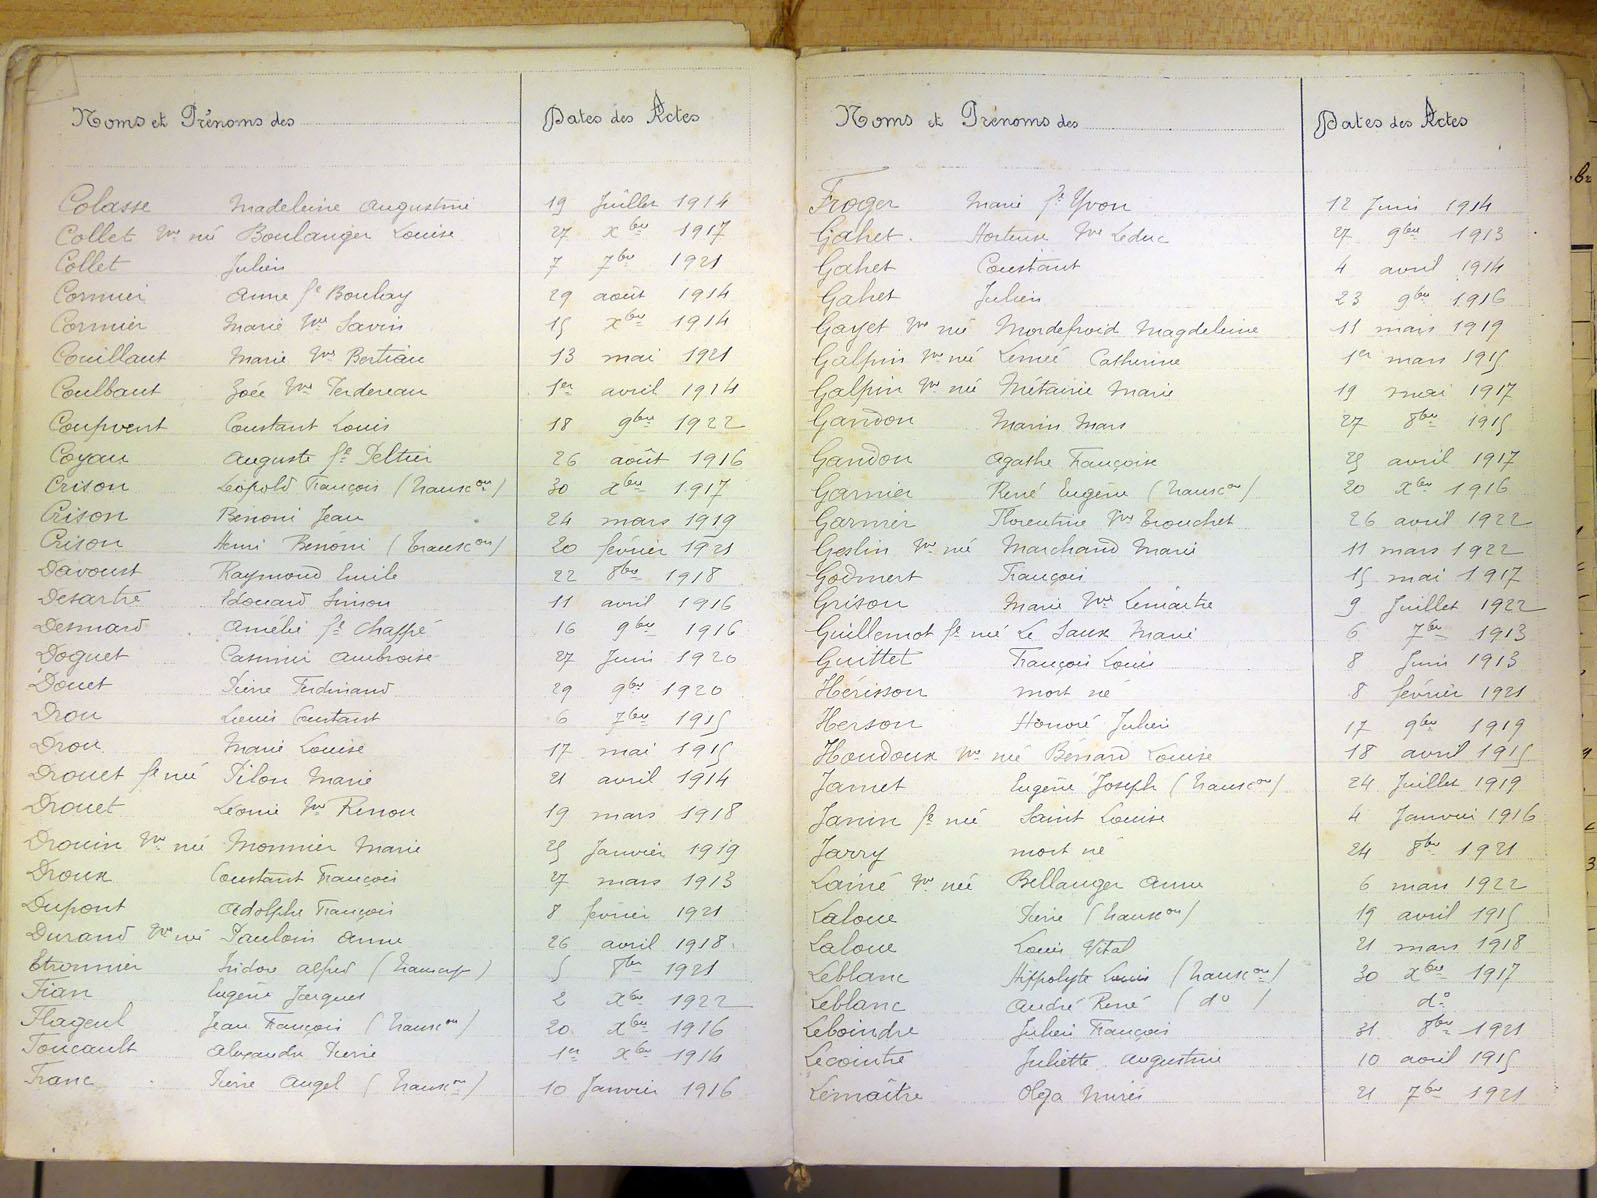 Noms et Prénoms des
Dates des Actes
Colasse Madeleine Augustine 19 Juillet 1914
Collet Vve née Boulanger Louise 27 Xbre 1917
Collet Julien 7 7bre 1921
Cormier Anne fe Bouhay 29 août 1914
Cormier Marie Vve Savin 15 Xbre 1914
Couillaut Marie Vve Bertiau 13 mai 1921
Coulbaut Zoée Vve Terdereau 1er avril 1914
Coupvent Constant Louis 18 9bre 1922
Coyau Auguste fe Peltier 26 août 1916
Crison Léopold François (transcon) 30 Xbre 1917
Crison Bénoni Jean 24 mars 1919
Crison Henri Bénoni (transcon) 20 février 1921
Davoust Raymond Emile 22 8bre 1918
Desartre Edouard Simon 11 avril 1916
Desmard Amélie fe Chaffré 16 9bre 1916
Doguet Casimir Ambroise 27 Juin 1920
Douet Pierre Ferdinand 29 9bre 1920
Drou Louis Constant 6 7bre 1915
Drou Marie Louise 17 mai 1915
Drouet fe née Pilon Marie 21 avril 1914
Drouet Léonie Vve Renou 19 mars 1918
Drouin Vve née Monnier Marie 25 Janvier 1919
Droux Constant François 27 mars 1913
Dupont Adolphe François 8 février 1921
Durand Vve née Pauloin Anne 26 avril 1918
Etronnier Isidore Alfred (transcrip) 5 8bre 1921
Fian Eugène Jacques 2 Xbre 1922
Flageul Jean François (transcon) 20 Xbre 1916
Foucault Alexandre Pierre 1er Xbre 1914
Franc Pierre Angel (transcon) 10 Janvier 1916
Noms et Prénoms des
Dates des Actes
Froger Marie fe Yvon 12 Juin 1914
Gahet Hortense Vve Leduc 27 9bre 1913
Gahet Constant 4 avril 1914
Gahet Julien 23 9bre 1916
Gayet Vve née Mordefroid Magdeleine 15 mars 1919
Galpin Vve née Lemée Catherine 1er mars 1915
Galpin Vve née Métairie Marie 19 mai 1917
Gandon Marin Mars 27 8bre 1915
Gandon Agathe Françoise 25 avril 1917
Garnier René Eugène (transcon) 20 Xbre 1916
Garnier Florentine Vve Trouchet 26 avril 1922
Geslin Vve née Marchand Marie 11 mars 1922
Godmert François 15 mai 1917
Grison Marie Vve Lemaitre 9 Juillet 1922
Guillemot fe née Le Saux Marie 6 7bre 1913
Guittet François Louis 8 Juin 1913
Hérisson mort né 8 février 1921
Herson Honoré Julien 17 9bre 1919
Houdoux Vve née Bénard Louise 18 avril 1915
Jamet Eugène Joseph (transcon) 24 Juillet 1919
Janin fe née Saint Louise 4 Janvier 1916
Jarry mort né 24 8bre 1921
Lainé Vve née Bellanger Anne 6 mars 1922
Laloue Pierre (transcon) 19 avril 1915
Laloue Louis Vital 21 mars 1918
Leblanc Hippolyte Louis (transcon) 30 Xbre 1917
Leblanc André René (do) do
Leboindre Julien François 31 8bre 1921
Lecointre Juliette Augustine 10 avril 1915
Lemaître Olga 21 7bre 1921